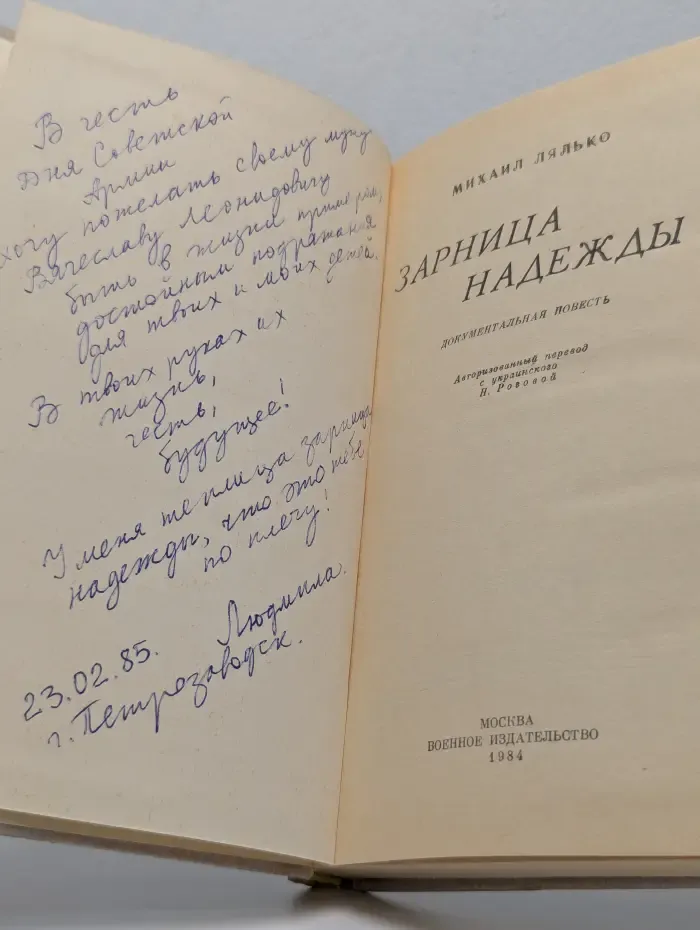 В честь
Дня Советской
Армии
хочу пожелать своему мужу
Вячеславу Леонидовичу
быть в жизни примером,
достойным подражания
для твоих и моих детей.
В твоих руках их
жизнь,
честь,
будущее!
У меня теплица зарница
надежды, что это тебе
по плечу!
Людмила.
23.02.85.
г. Петрозаводск.
МИХАИЛ ЛЯЛЬКО
ЗАРНИЦА
НАДЕЖДЫ
ДОКУМЕНТАЛЬНАЯ ПОВЕСТЬ
Авторизованный перевод
с украинского
Н. Роговой
МОСКВА
ВОЕННОЕ ИЗДАТЕЛЬСТВО
1984